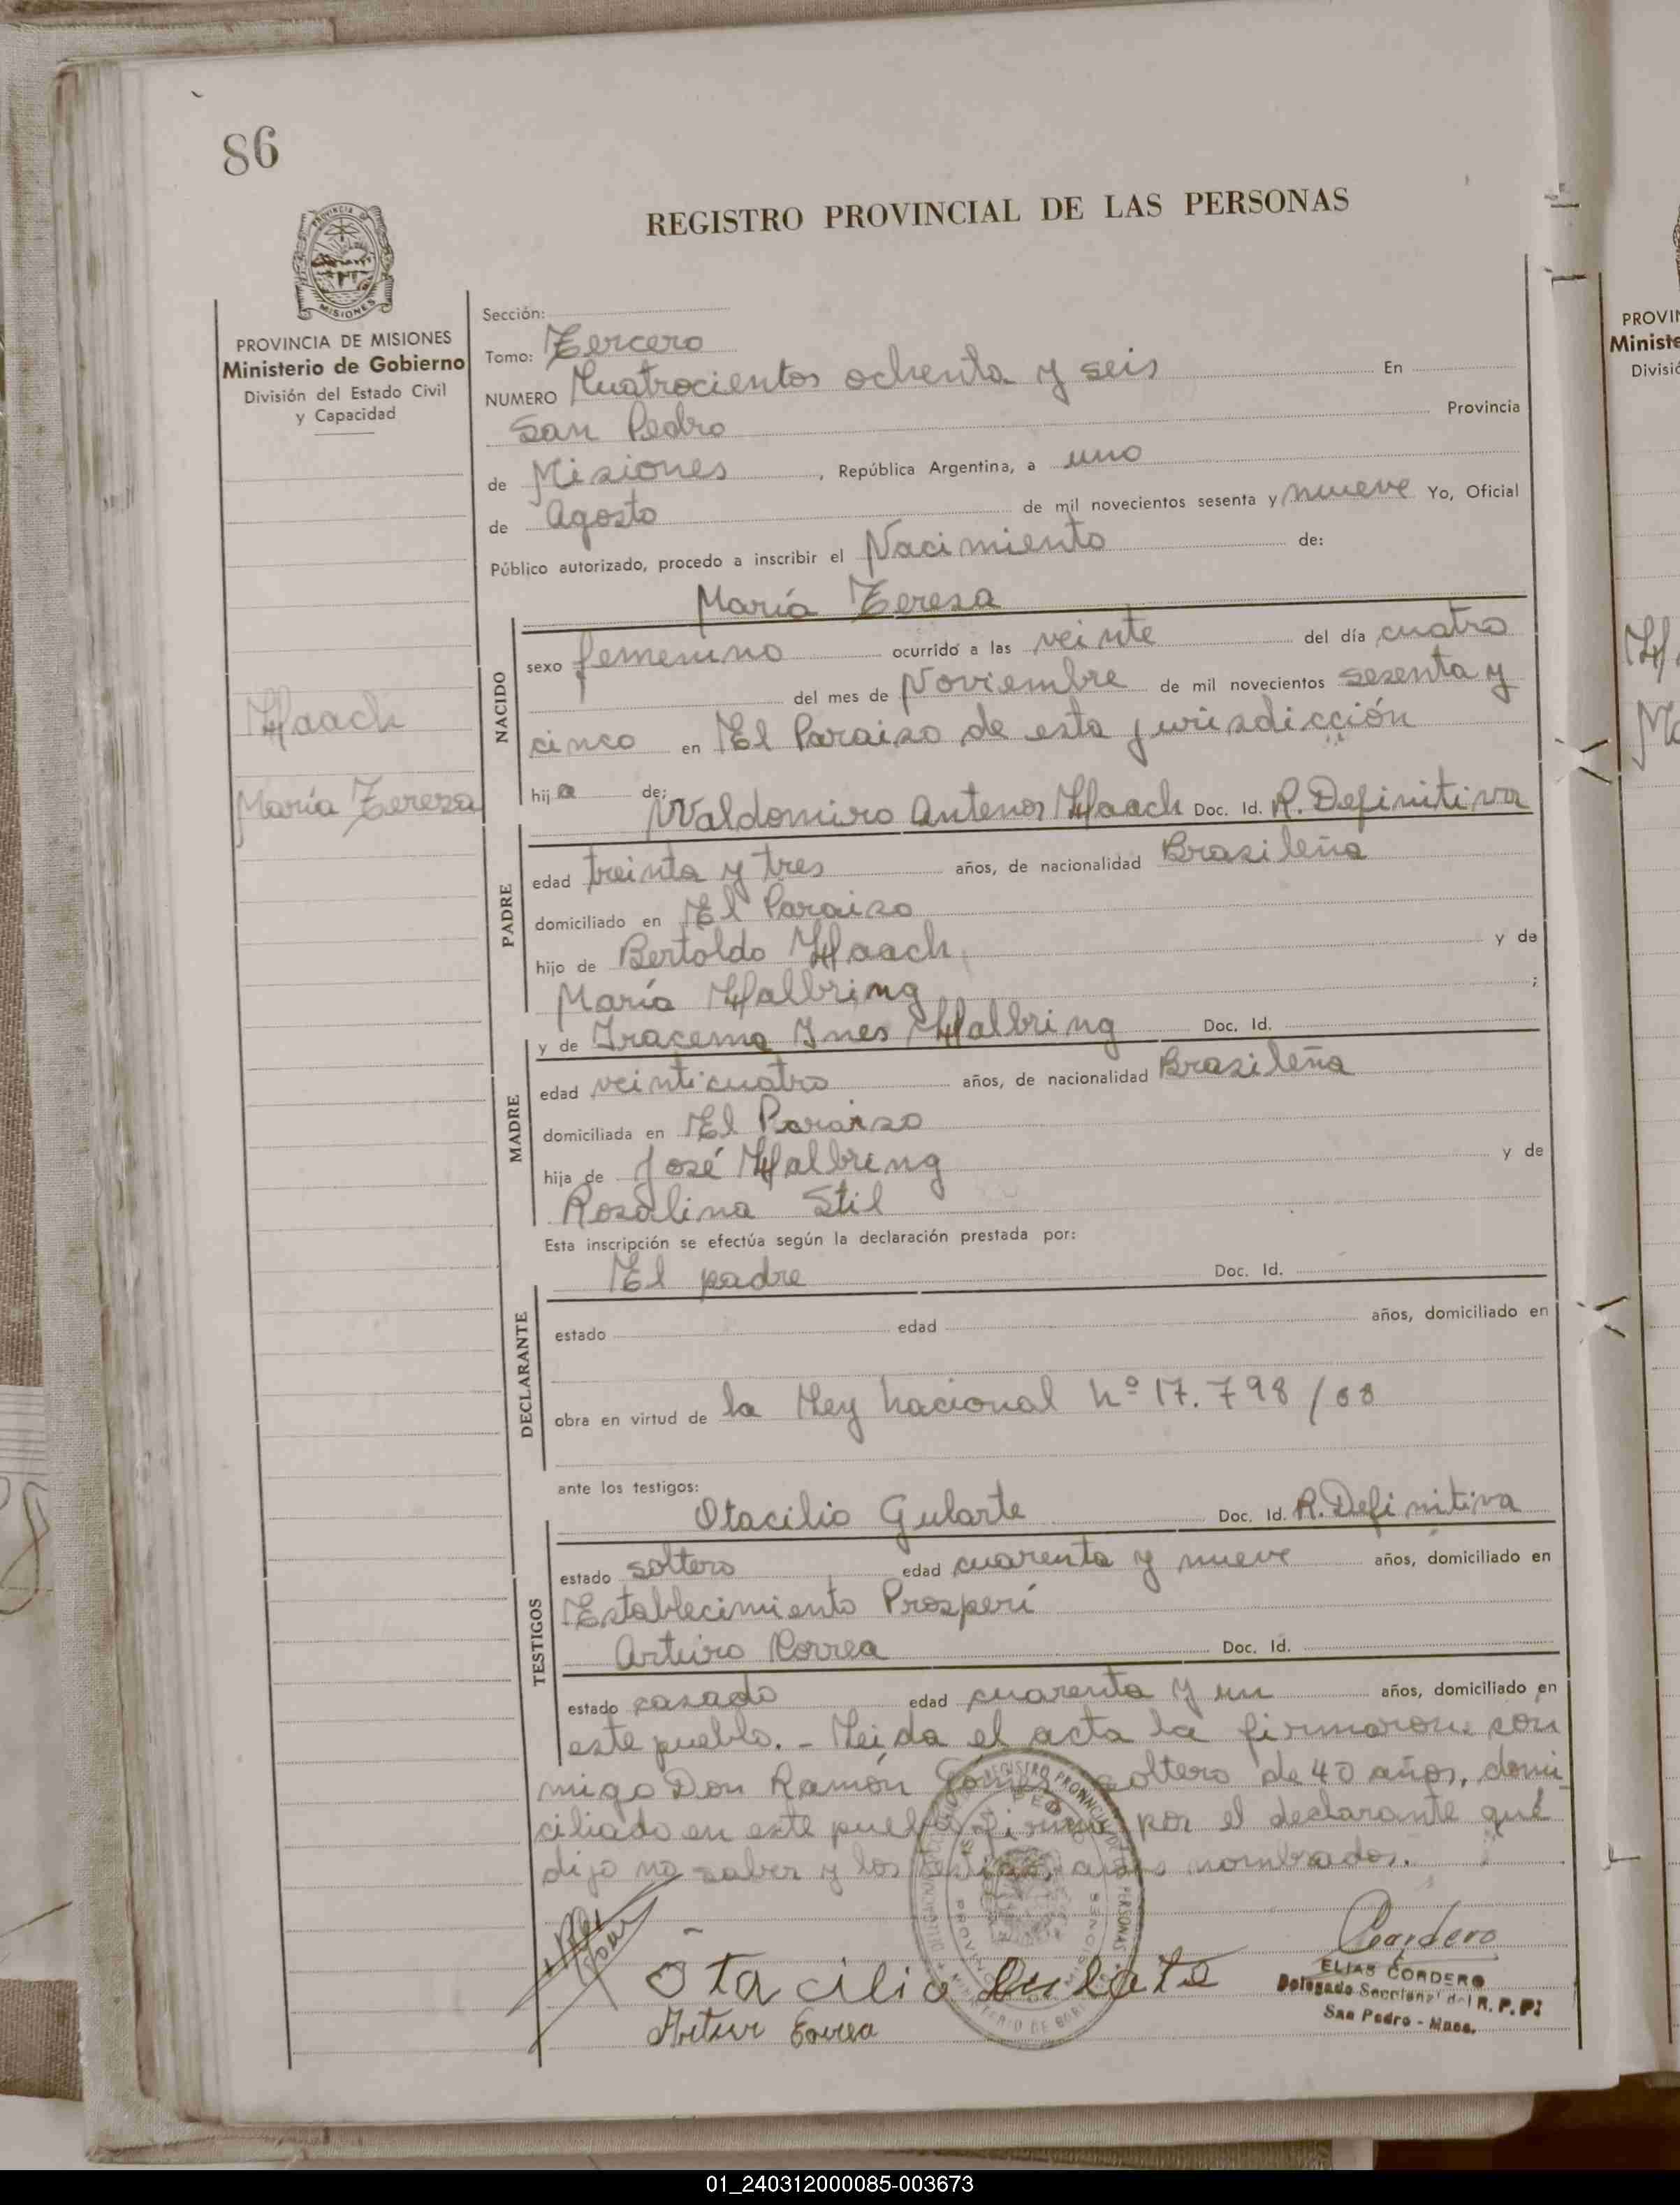 86
REGISTRO PROVINCIAL DE LAS PERSONAS
PROVINCIA DE MISIONES
Ministerio de Gobierno
División del Estado Civil
y Capacidad
Haach
María Tereza
Sección:
Tomo: Tercero
NUMERO Cuatrocientos ochenta y seis En
San Pedro Provincia
de Misiones, República Argentina, a uno
de Agosto de mil novecientos sesenta y nueve Yo, Oficial
Público autorizado, procedo a inscribir el Nacimiento de:
María Tereza
NACIDO
sexo femenino ocurrido a las veinte del día cuatro
del mes de Noviembre de mil novecientos sesenta y
cinco en El Paraizo de esta jurisdicción
hija de: Waldomiro Antenor Haach Doc. Id. R. Definitiva
PADRE
edad treinta y tres años, de nacionalidad Brasileña
domiciliado en El Paraizo
hijo de Bertoldo Haach y de
María Halbring ;
y de Iracema Ines Halbring Doc. Id.
MADRE
edad veinticuatro años, de nacionalidad Brasileña
domiciliada en El Paraizo
hija de José Halbring y de
Rosalina Stil
Esta inscripción se efectúa según la declaración prestada por:
El padre Doc. Id.
DECLARANTE
estado edad años, domiciliado en
obra en virtud de la Ley Nacional Nº 17.798/68
ante los testigos:
Otacilio Gularte Doc. Id. R. Definitiva
TESTIGOS
estado soltero edad cuarenta y nueve años, domiciliado en
Establecimiento Prosperí
Arturo Correa Doc. Id.
estado casado edad cuarenta y un años, domiciliado en
este pueblo. - Leida el acta la firmaron con
migo Don Ramón Gómez soltero de 40 años, domi
ciliado en este pueblo firma por el declarante qué
dijo no saber y los testigos antes nombrados.
Otacilio Gulate
Artur Correa
Cordero
ELIAS CORDERO
Delegado Seccional del R. P. P.
San Pedro - Mnes.
01_240312000085-003673